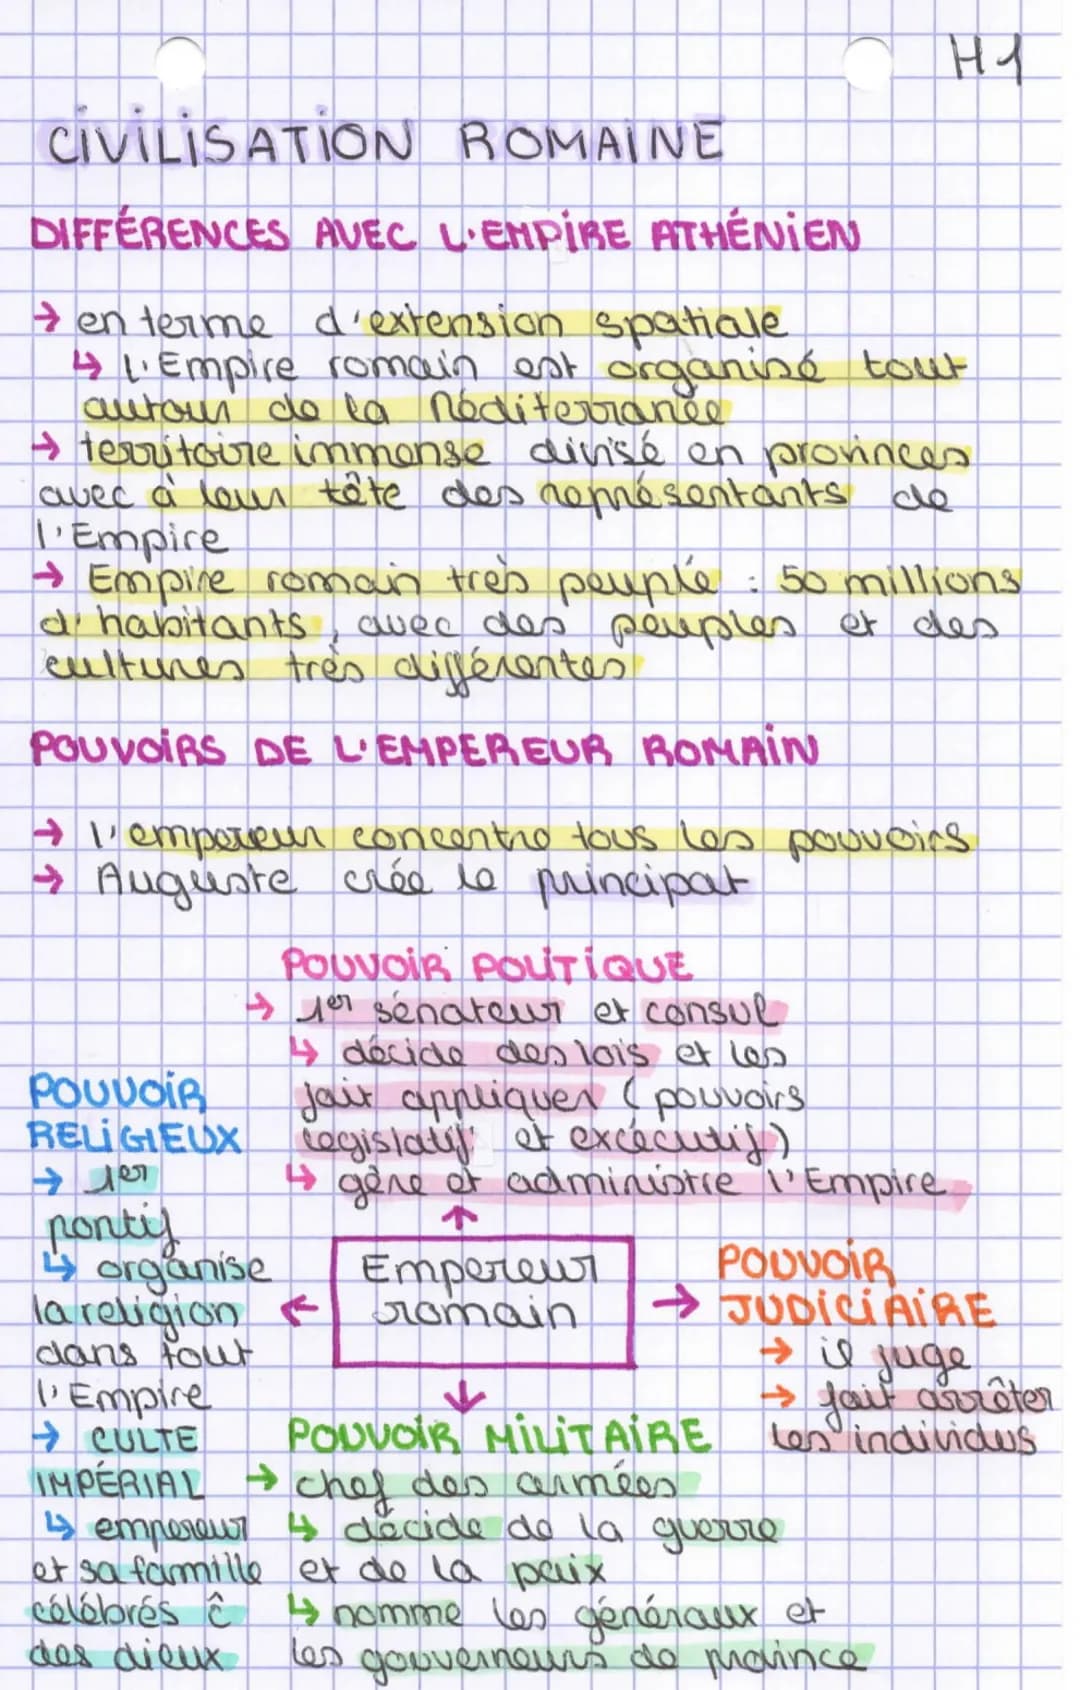 H1
CIVILISATION ROMAINE
DIFFÉRENCES AVEC L'EMPIRE ATHÉNIEN
→ en terme d'extension spatiale
↳ l'Empire romain est organisé tout
autour de la Méditerranée
→ territoire immense divisé en provinces
avec à leur tête des représentants de
l'Empire
→ Empire romain très peuplé : 50 millions
d'habitants, avec des peuples et des
cultures très différentes
POUVOIRS DE L'EMPEREUR ROMAIN
→ l'empereur concentre tous les pouvoirs
→ Auguste crée le principat
POUVOIR POLITIQUE
→ 1er sénateur et consul
↳ décide des lois et les
fait appliquer (pouvoirs
legislatif et excécutif)
↳ gère et administre l'Empire
POUVOIR
RELIGIEUX
→ 1er
pontif
↳ organise
la religion
dans tout
l'Empire
→ CULTE
IMPÉRIAL
↳ empereur
et sa famille
célébrés ĉ
des dieux
Empereur
romain
POUVOIR
JUDICIAIRE
→ il juge
→ fait arrêter
les individus
POUVOIR MILITAIRE
→ chef des armées
↳ décide de la guerre
et de la paix
↳ nomme les généraux et
les gouverneurs de province